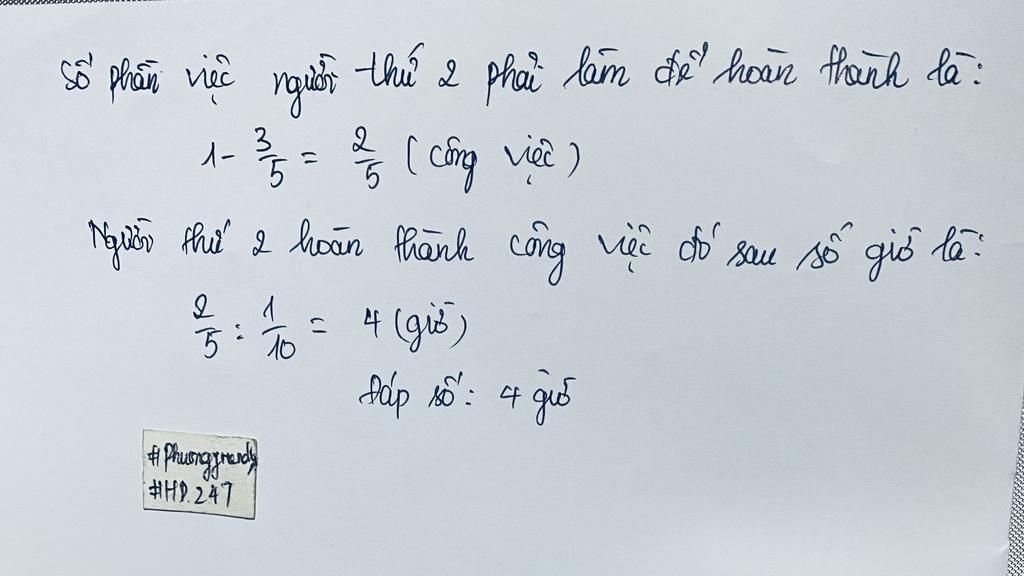 Số phần việc người thứ 2 phải làm để hoàn thành là:
1 - 3/5 = 2/5 (công việc)
Người thứ 2 hoàn thành công việc đó sau số giờ là:
2/5 : 1/10 = 4 (giờ)
Đáp số: 4 giờ
#HD.247